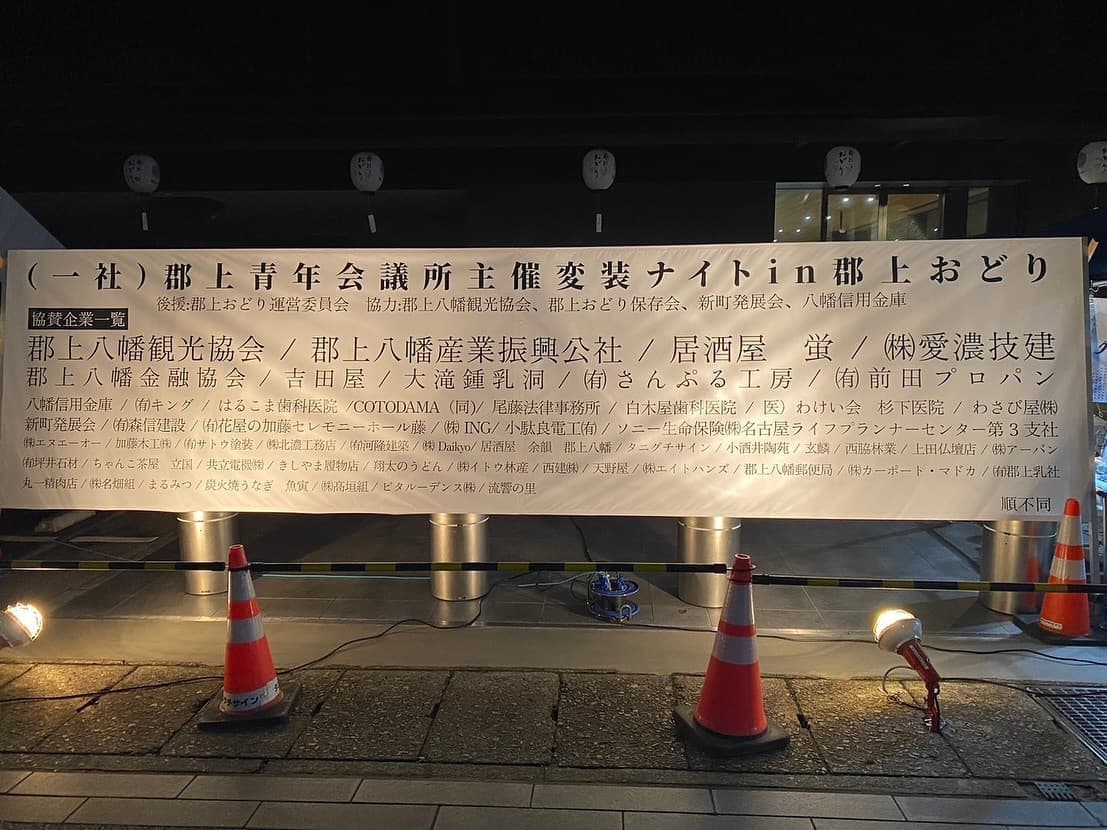 (一社)郡上青年会議所主催変装ナイトin郡上おどり
後援:郡上おどり運営委員会　協力:郡上八幡観光協会、郡上おどり保存会、新町発展会、八幡信用金庫
協賛企業一覧
郡上八幡観光協会 / 郡上八幡産業振興公社 / 居酒屋　蛍 / ㈱愛濃技建
郡上八幡金融協会 / 吉田屋 / 大滝鍾乳洞 / ㈲さんぷる工房 / ㈲前田プロパン
八幡信用金庫 / ㈲キング / はるこま歯科医院 /COTODAMA（同)/ 尾藤法律事務所 / 白木屋歯科医院 / 医）わけい会　杉下医院 / わさび屋㈱
新町発展会 / ㈲森信建設 / ㈲花屋の加藤セレモニーホール藤 / ㈱ING/ 小駄良電工㈲ / ソニー生命保険㈱名古屋ライフプランナーセンター第3支社
㈱エヌエーオー / 加藤木工㈱ / ㈲サトウ塗装 / ㈱北濃工務店 / ㈲河隆建築 / ㈱Daikyo/ 居酒屋　余韻　郡上八幡 / タニグチサイン / 小酒井陶苑 / 玄麟 / 西脇林業 / 上田仏壇店 / ㈱アーバン
㈲坪井石材 / ちゃんこ茶屋　立国 / 共立電機㈱ / きしやま履物店 / 翔太のうどん / ㈱イトウ林産 / 西建㈱ / 天野屋 / ㈱エイトハンズ / 郡上八幡郵便局 / ㈱カーポート・マドカ / ㈲郡上乳社
丸一精肉店 / ㈱名畑組 / まるみつ / 炭火焼うなぎ　魚寅 / ㈱髙垣組 / ビタルーデンス㈱ / 流響の里
順不同